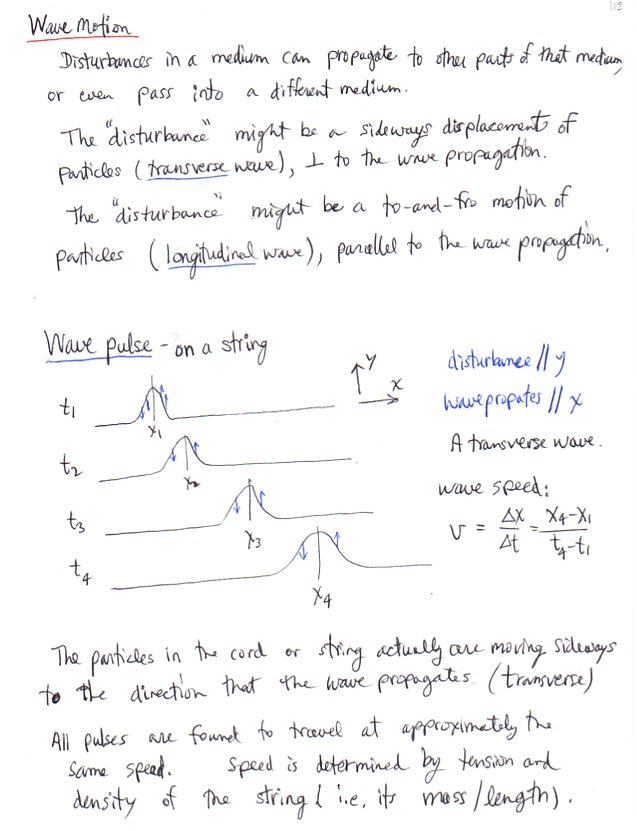 112
Wave Motion
Disturbances in a medium can propagate to other parts of that medium,
or even pass into a different medium.
The "disturbance" might be a sideways displacement of
particles (transverse wave), ⊥ to the wave propagation.
The "disturbance" might be a to-and-fro motion of
particles (longitudinal wave), parallel to the wave propagation.
Wave pulse - on a string
y
x
disturbance // y
wave propates // x
A transverse wave.
wave speed:
v = Δx/Δt = x₄-x₁/t₄-t₁
t₁
x₁
t₂
x₂
t₃
x₃
t₄
x₄
The particles in the cord or string actually are moving sideways
to the direction that the wave propagates. (transverse)
All pulses are found to travel at approximately the
same speed. Speed is determined by tension and
density of the string (i.e, its mass/length).